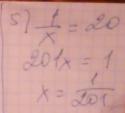 5) 1/x = 20
201x = 1
x = 1/201